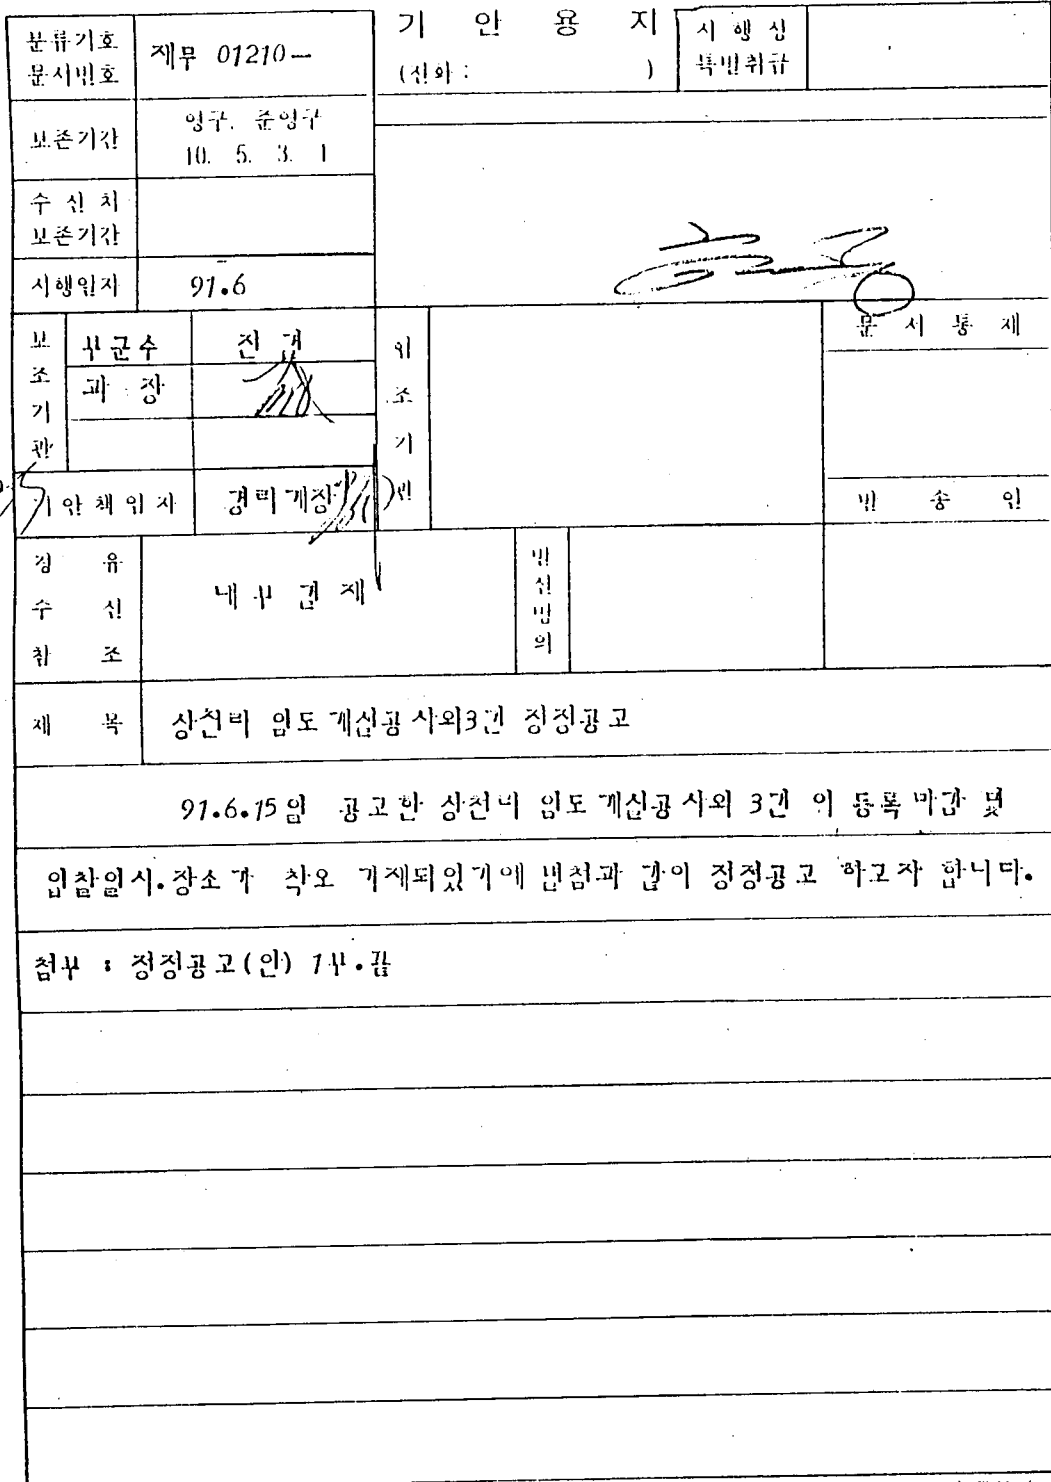 기 안 용 지
분류기호
문서번호
재무 01210—
(전화 : )
시 행 상
특별취급
보존기간
영구. 준영구
10. 5. 3. 1
수 신 처
보존기간
시행일자
91.6
보조기관
부군수
전결
과 장
협조기관
문 서 통 제
기안책임자
경리계장
발 송 인
경 유
수 신
참 조
내부결재
발신명의
제 목
상천리 임도 개설공사외3건 정정공고
91.6.15일 공고한 상천리 임도 개설공사외 3건 의 등록마감 및
입찰일시.장소가 착오 기재되있기에 별첨과 같이 정정공고 하고자 합니다.
첨부 : 정정공고(안) 1부.끝